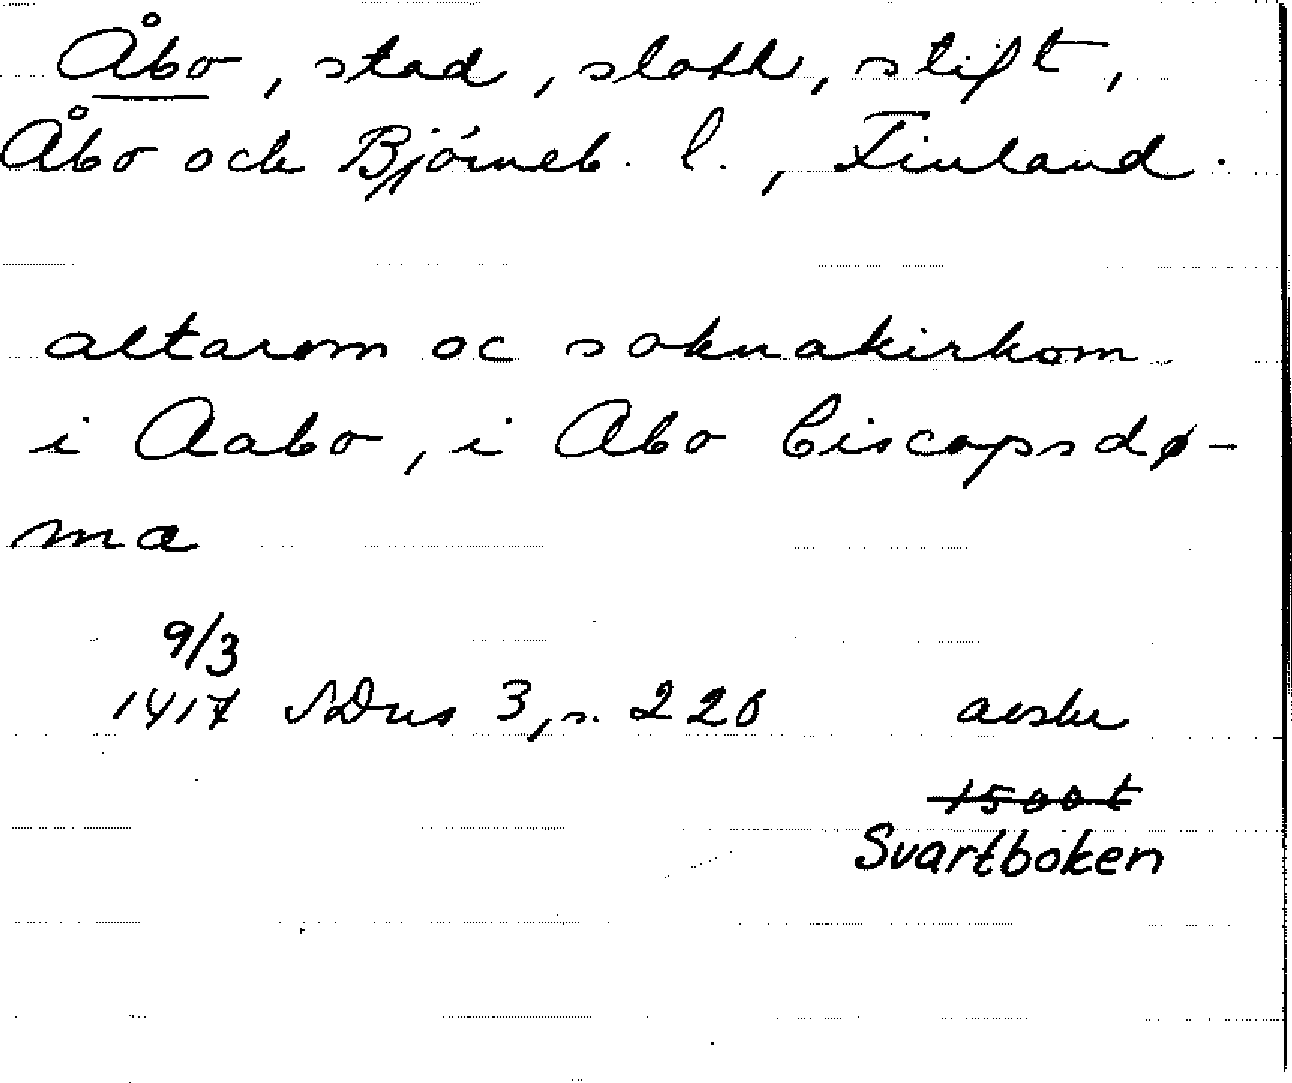 Åbo, stad, slott, stift,
Åbo och Björneb. l., Finland.
altarom oc soknakirkom
i Aabo, i Abo biscopsdø-
ma
9/3
1417 SDns 3, s. 220 avskr
1500t
Svartboken